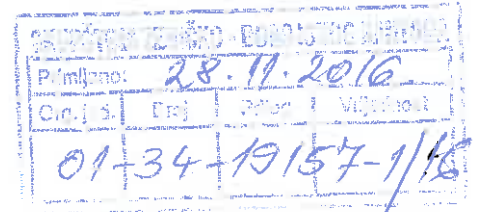 Primljeno: 28.11.2016
Org. jed. Broj Prilog Vrijednost
01-34-19157-1/16